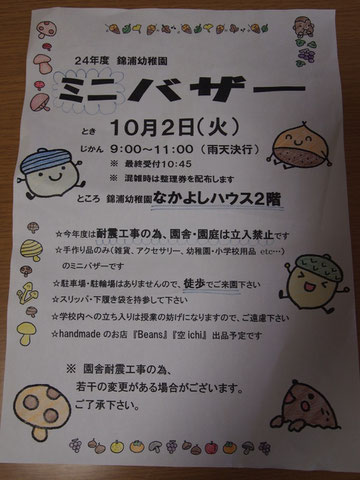 24年度 錦浦幼稚園
ミニバザー
とき 10月2日(火)
じかん 9:00~11:00 (雨天決行)
※ 最終受付10:45
※ 混雑時は整理券を配布します
ところ 錦浦幼稚園なかよしハウス2階
☆今年度は耐震工事の為、園舎・園庭は立入禁止です
☆手作り品のみ(雑貨、アクセサリー、幼稚園・小学校用品 etc…)
のミニバザーです
☆駐車場・駐輪場はありませんので、徒歩でご来園下さい
☆スリッパ・下履き袋を持参して下さい
☆学校内への立ち入りは授業の妨げになりますので、ご遠慮下さい
☆handmadeのお店『Beans』『空ichi』出品予定です
※ 園舎耐震工事の為、
若干の変更がある場合がございます。
ご了承下さい。